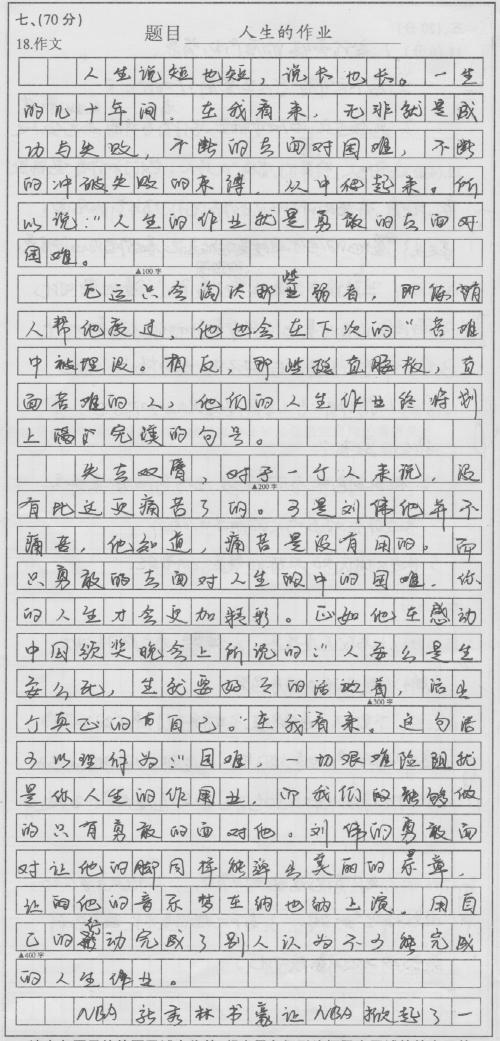 七、(70分)
18.作文 题目 人生的作业
人生说短也短，说长也长。一生
的几十年间，在我看来，无非就是成
功与失败，不断的去面对困难，不断
的冲破失败的束缚，从中爬起来。所
以说："人生的作业就是勇敢的去面对
困难。
▲100字
厄运只会淘汰那些弱者，即使有
人帮他度过，他也会在下次的"苦难
中被埋没。相反，那些挺直腰板，直
面苦难的人，他们的人生作业终将划
上隔完满的句号。
失去双臂，对于一个人来说，没
▲200字
有比这更痛苦了的。可是刘伟他并不
痛苦，他知道，痛苦是没有用的。而
只勇敢的去面对人生的中的困难，你
的人生才会更加精彩。正如他在感动
中国颁奖晚会上所说的："人要么是生
要么死，生就要好好的活地着，活出
▲300字
个真正的有自己。"在我看来。这句话
可以理解为："困难，一切艰难险阻就
是你人生的作用业，而我们的能够做
的只有勇敢的面对他。刘伟的勇敢面
对让他的脚同样能弹出美丽的乐章，
让的他的音乐梦在纳也纳上演。用自
己的行动完成了别人认为不可能完成
▲400字
的人生作业。
NBA新秀林书豪让NBA掀起了一